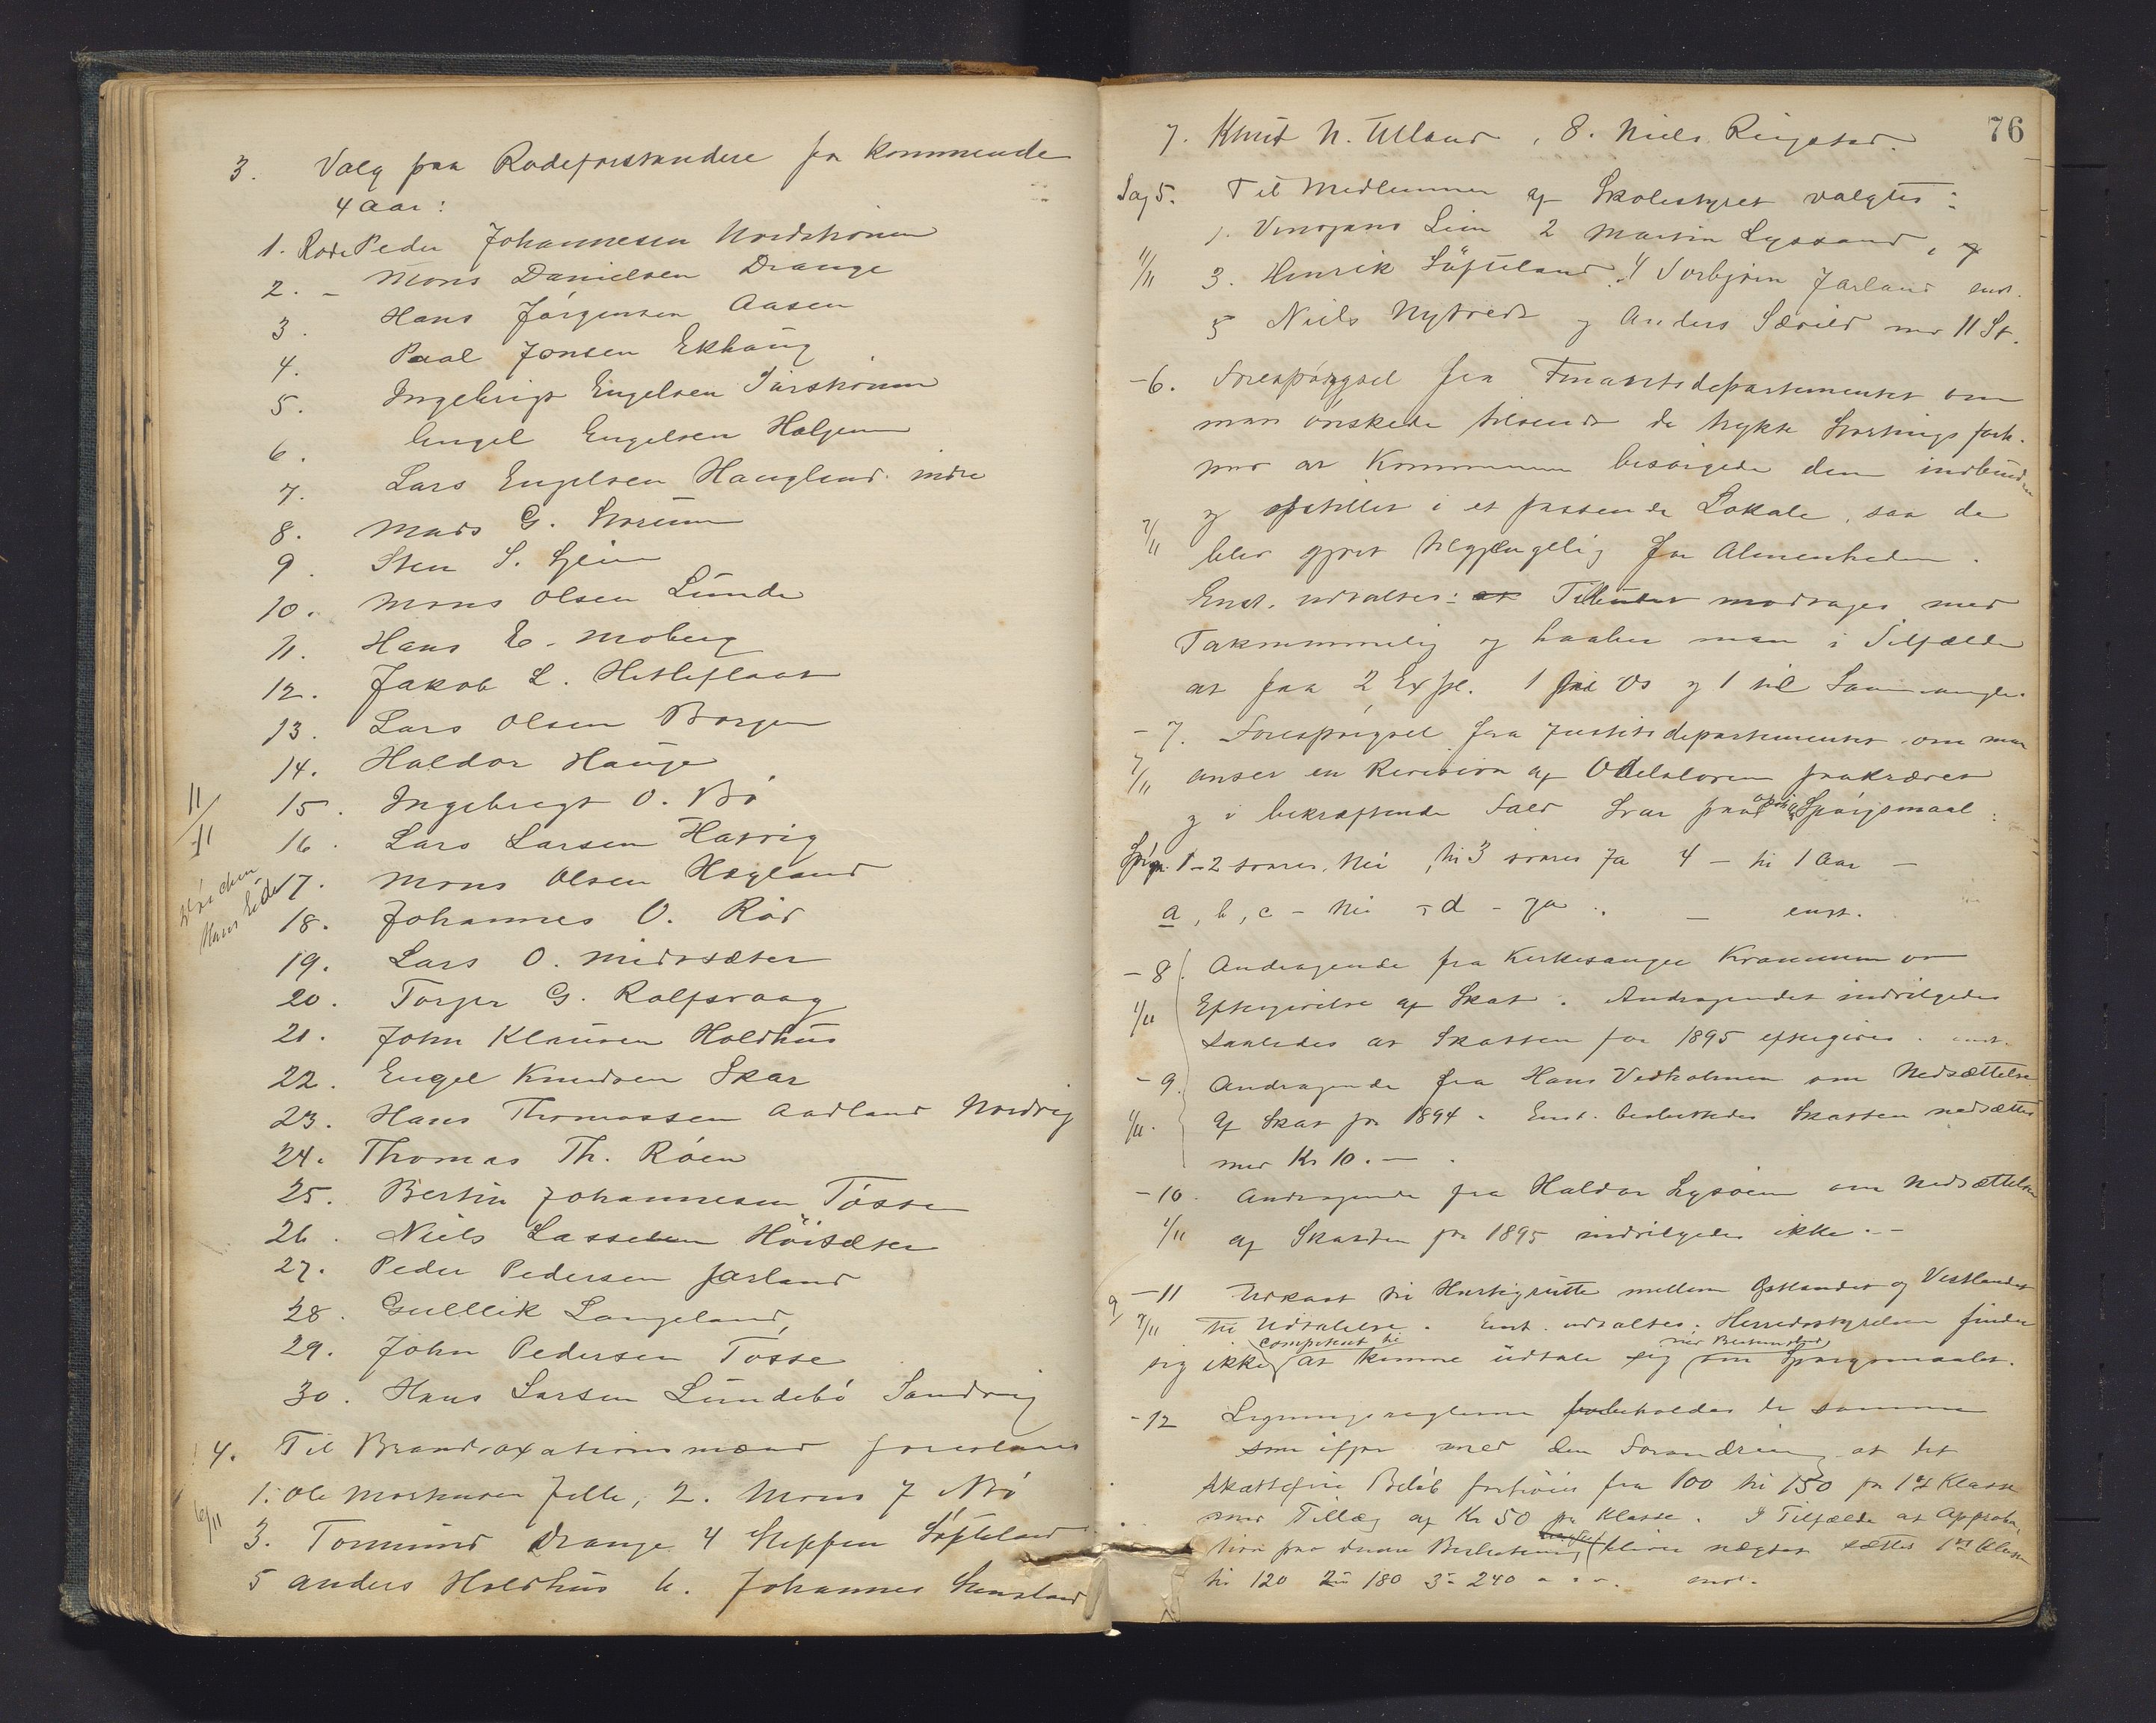 3. Valg paa Rodeforstandere for kommende
4 Aar:
1. Rode Peder Johannesen Nordstrønen
2. - Mons Danielsen Drange
3. Hans Jørgensen Aasen
4. Paal Jonsen Ekhaug
5. Ingebrigt Engelsen Sørstrønen
6. Engel Engelsen Haljem
7. Lars Engelsen Hauglend indre
8. Mads G. Storum
9. Sten S. Gjeim
10. Mons Olsen Lunde
11. Hans E. Moberg
12. Jakob L. Hetleflaat
13. Lars Olsen Borgen
14. Haldor Hauge
15. Ingebrigt O. Bø
16. Lars Larsen Hatvig
17. Mons Olsen Hegland
18. Johannes O. Rød
19. Lars O. Midtsæter
20. Torger G. Rolfsvaag
21. John Klausen Holdhus
22. Engel Knudsen Skar
23. Hans Thomassen Aadland Nordvig
24. Thomas Th. Røen
25. Bertin Johannesen Tøsse
26. Niels Lassesen Höisæter
27. Peder Pedersen Jarland
28. Gullik Langeland,
29. John Pedersen Tøsse
30. Hans Larsen Lundebø Sandvig
11/11
Hans Eide
4. Til Brandtaxationsmænd foreslaaes
1. Ole Mortensen Jelle, 2. Mons J Bø
6/11
3. Tormund Drange 4 Steffen Søfteland
5 Anders Holdhus 6. Johannes Stensland
76
7. Knut N. Ulland, 8. Niels Ringstad.
Sag 5. Til Medlemmer af Skolestyret valgtes:
1. Vinsjans Lien 2 Martin Lyssand, og
11/11 3. Henrik Søfteland, 4 Torbjørn Jarland enst.
5 Niels Nytvedt og Anders Sævild med 11 St.
- 6. Forespørgsel fra Finantsdepartementet om
man ønskede tilsendt de trykte Storthings forh.
mod at Kommunen besørgede dem indbundne
og opstillet i et passende Lokale, saa de
7/11 blev gjort tilgjengelig for Almenheden.
Enst. udtaltes: at Tilbudet modtages med
Taknemmelig og haaber man i Tilfælde
at faa 2 Expl. 1 for Os og 1 til Samnanger
- 7. Forespørgsel fra Justitsdepartementet om man
7/11 anser en Revision af Odelsloven paakrævet
og i bekræftende Fald Svar paa Spørgsmaal:
Spørgm. 1-2 svares Nei, til 3 svares Ja 4 - til 1 Aar -
a, b, c - Nei - d - Ja. - enst.
- 8. Andragende fra Kirkesanger Kronemn om
1/11 Eftergivelse af Skat. Andragendet indvilgedes
saaledes at Skatten for 1895 eftergives. enst.
- 9. Andragende fra Hans Vedholmen om Nedsættelse
1/11. af Skat for 1894. Enst. besluttedes Skatten nedsættes
med Kr 10. -
- 10. Andragende fra Haldor Lysøen om Nedsættelse
1/11 af Skatten for 1895 indvilgedes ikke. -
- 11 Udkast til Hurtigrutte mellem Østlandet og Vestlandet
7/11 til Udtalelse. Enst. udtaltes. Herredsstyrelsen finder
competent til
sig ikke at kunne udtale sig om Spørgsmaalet.
- 12 Ligningsreglerne beholdes de samme
som ifjor med den Forandring at det
skattefrie Beløb forhøies fra 100 til 150 for 1ste Klasse
med Tillæg af Kr 50 pr Klasse. I Tilfælde at Approba-
tion paa denne Beslutning bliver nægtet sættes 1ste Klasse
til 120 2den 180 3- 240 - - -. enst.